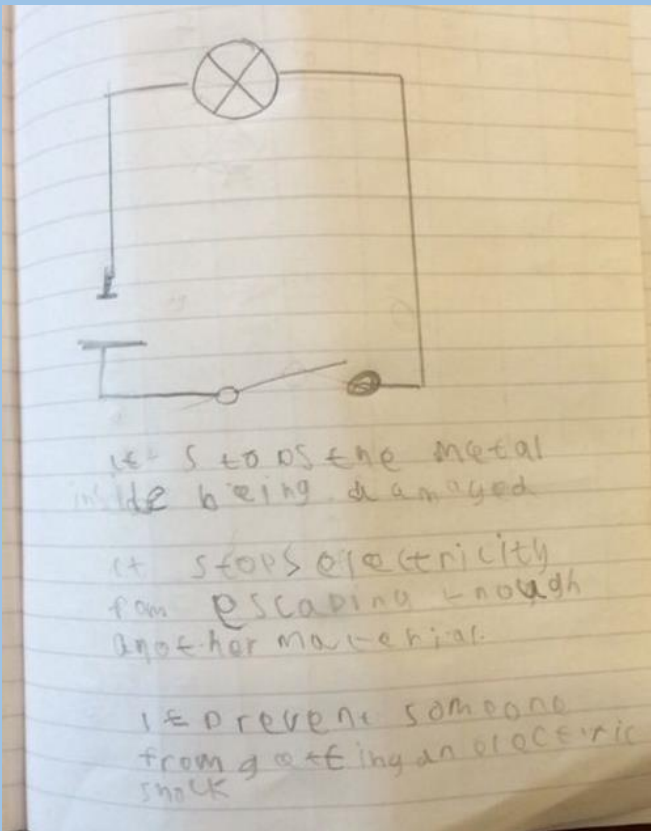 it stops the metal
inside being damaged
it stops electricity
fom escaping though
another material.
it prevent someone
from getting an electric
shock